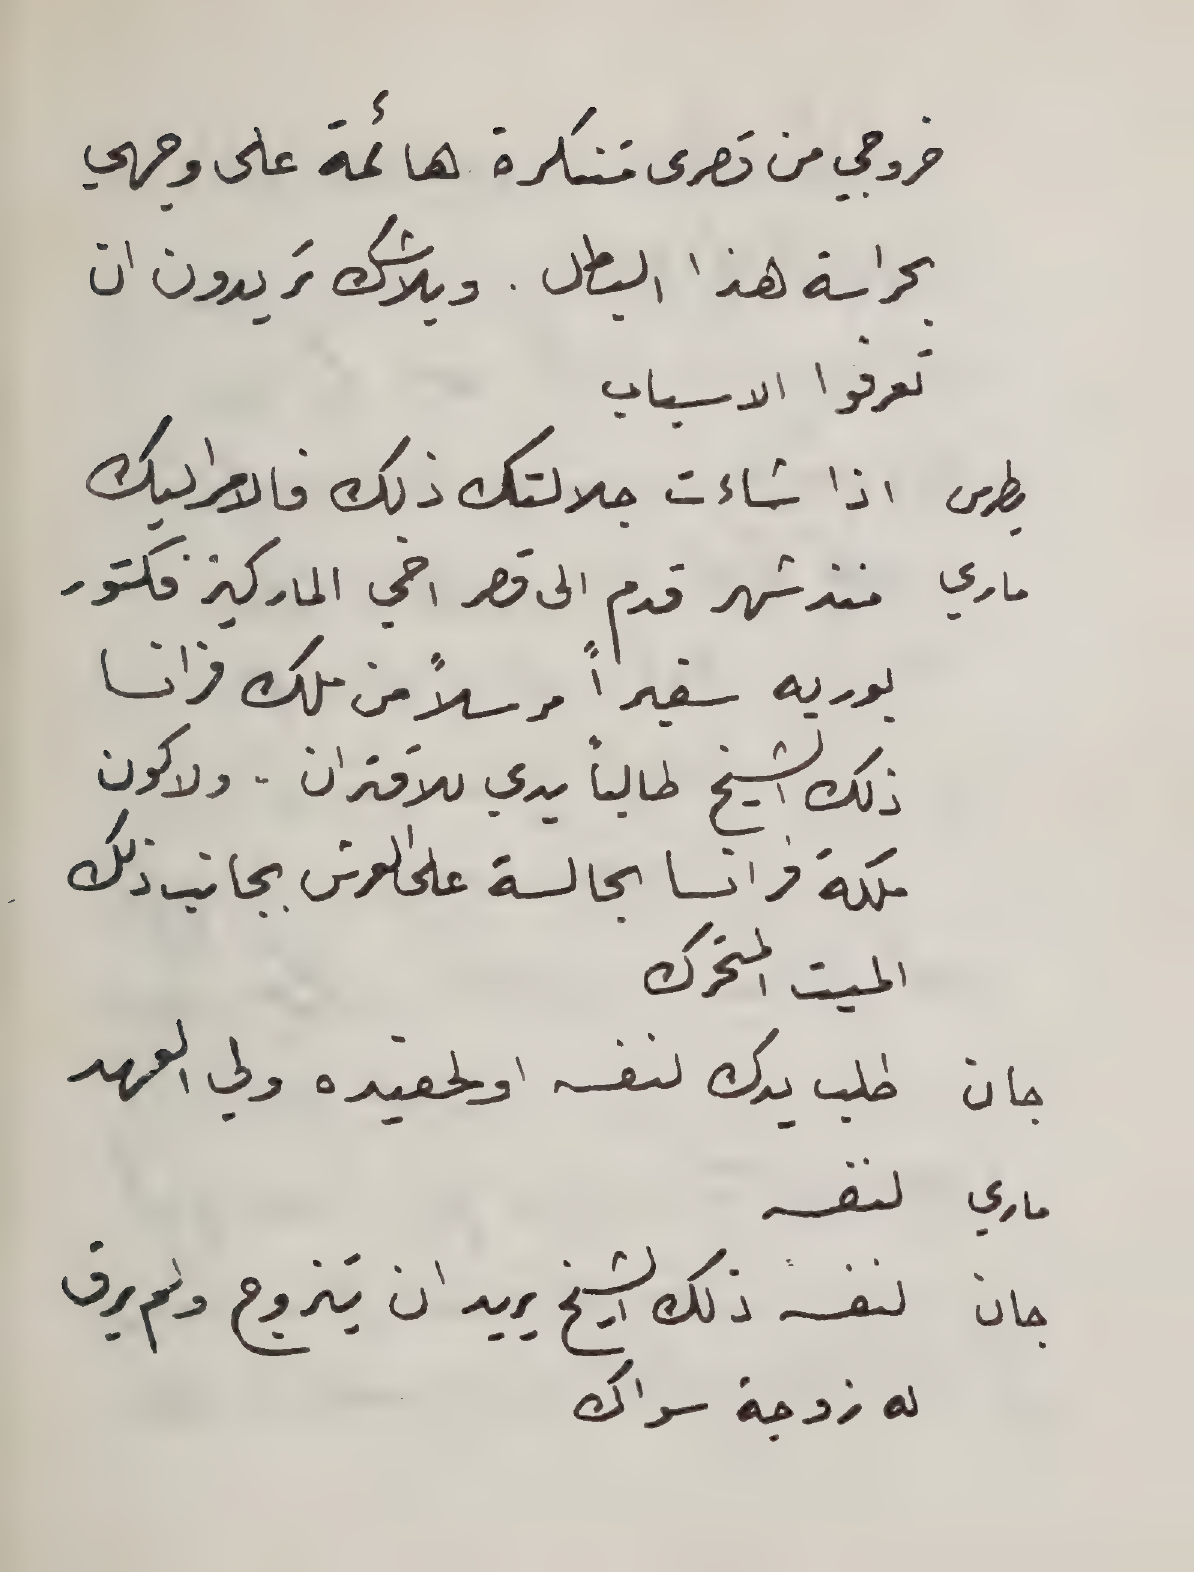 خروجي من قصرى متنكرة هائمة على وجهي
بحراسة هذا البطل . وبلاشك تريدون ان
تعرفوا الاسباب
بطرس اذا شاءت جلالتك ذلك فالامر اليك
ماري منذ شهر قدم الى قصر اخي الماركيز فكتور
بوريه سفيراً مرسلاً من ملك فرانسا
ذلك الشيخ طالباً يدي للاقتران - ولاكون
ملكة فرانسا بجالسة على العرش بجانب ذلك
الميت المتحرك
جان طلب يدك لنفسه او لحفيده ولي العهد
ماري لنفسه
جان لنفسه ذلك الشيخ يريد ان يتزوج ولم يرق
له زوجة سواك